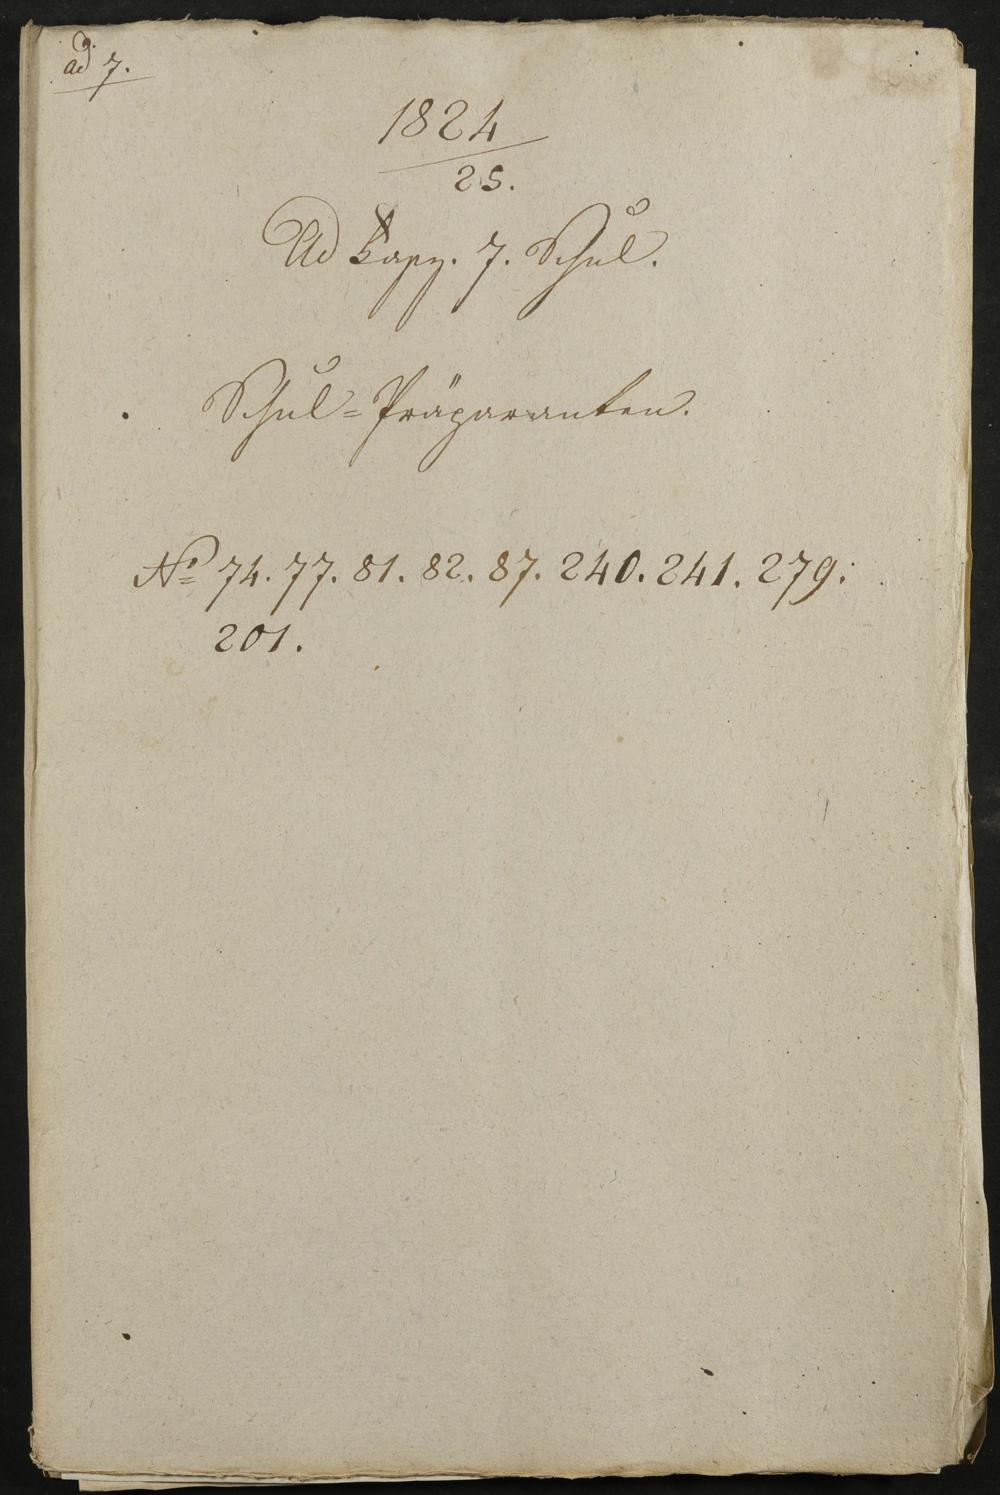 ad 7.
1824
25.
Ad Kapp. 7. Schul.
Schul=Präparanten.
No 74. 77. 81. 82. 87. 240. 241. 279.
201.